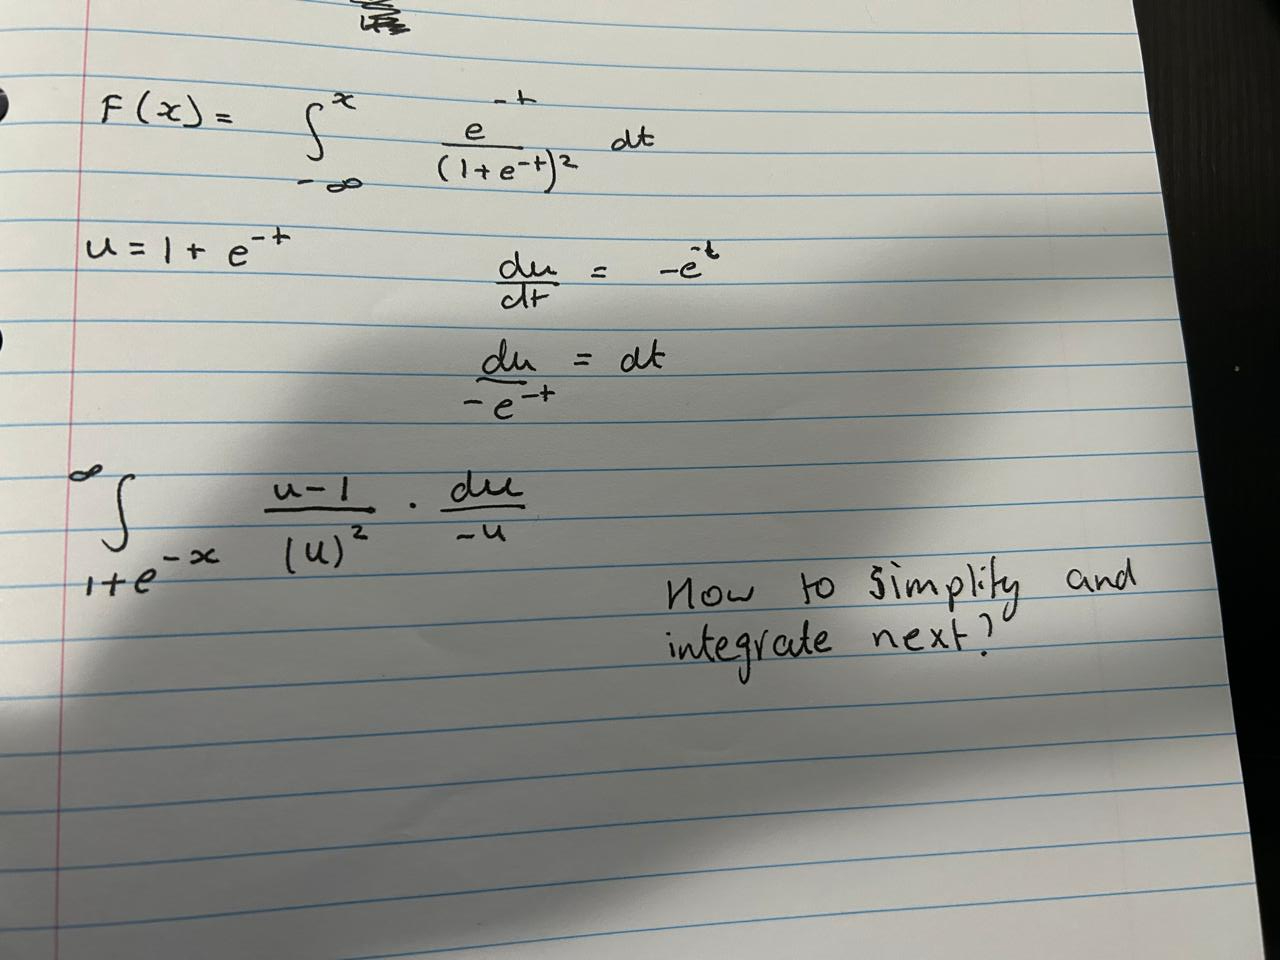 F(x) = ∫_{-∞}^{x} e^{-t}/(1+e^{-t})² dt
u = 1 + e^{-t}    du/dt = -e^{-t}
du/-e^{-t} = dt
∫_{1+e^{-x}}^{∞} u-1/(u)² · du/-u
How to simplify and
integrate next?